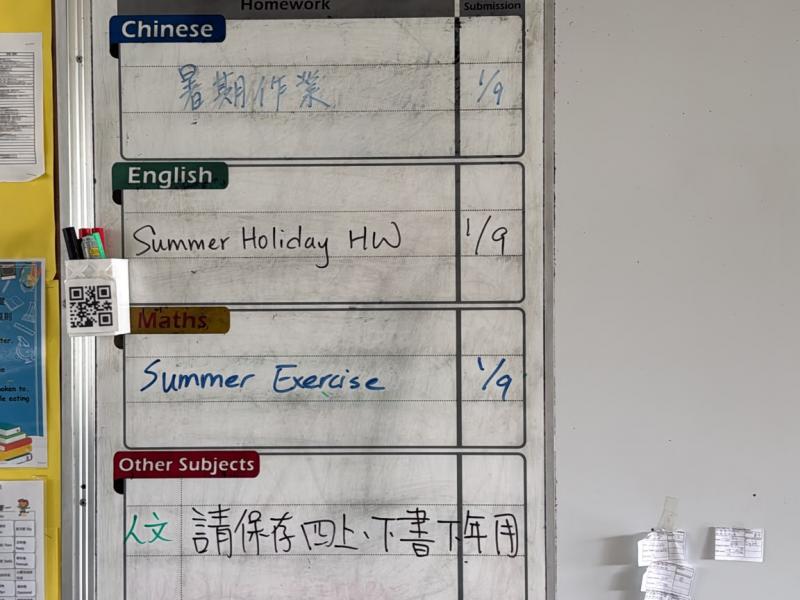 Homework Submission
Chinese
暑期作業 1/9
English
Summer Holiday HW 1/9
Maths
Summer Exercise 1/9
Other Subjects
人文 請保存四上、下書下年用